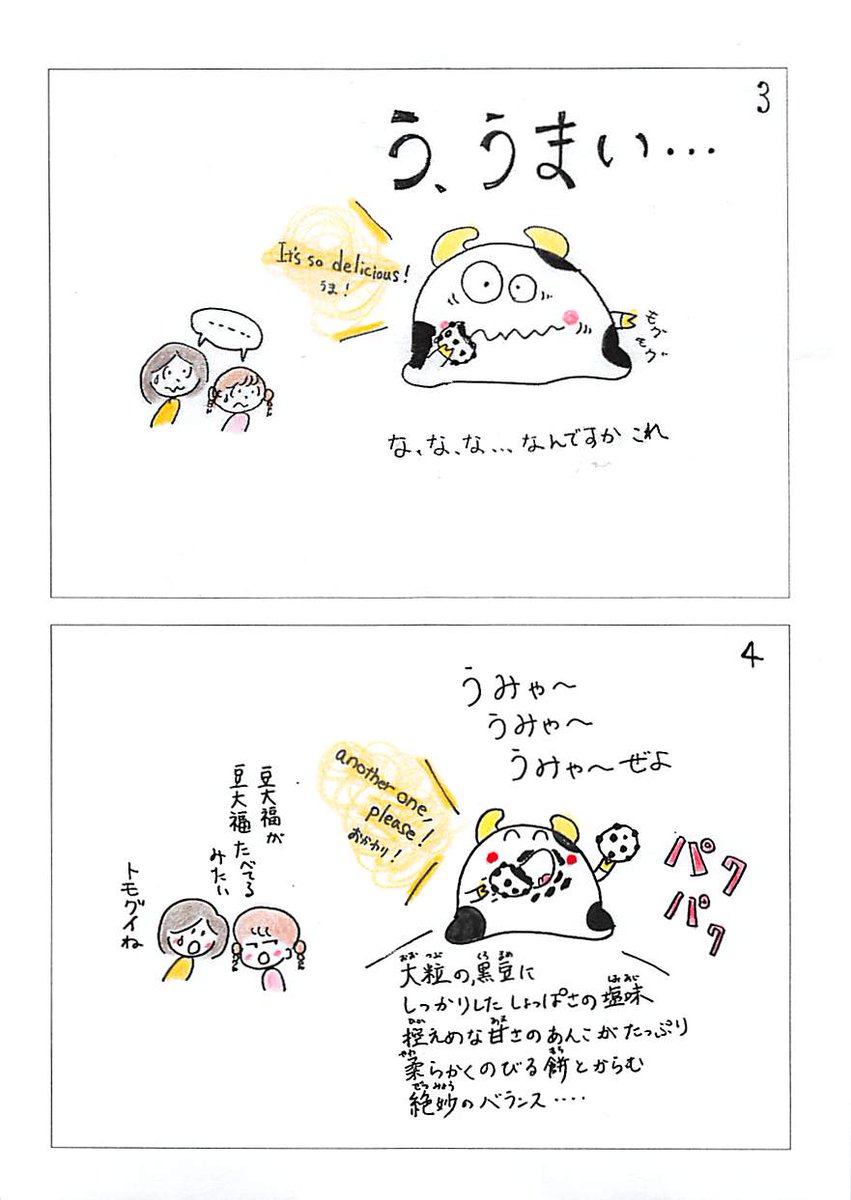 3
う、うまい…
It's so delicious!
うま!
------
モグ
モグ
な、な、な…なんですか これ
4
うみゃ〜
うみゃ〜
うみゃ〜ぜよ
another one,
please!
おかわり!
豆大福が
豆大福たべてる
みたい
トモグイね
パク
パク
おお つぶ くろ まめ
大粒の、黒豆に
しおあじ
しっかりした しょっぱさの塩味
ひか あま
控えめな甘さのあんこがたっぷり
やわ もち
柔らかくのびる餅とからむ
ぜつみょう
絶妙のバランス‥‥